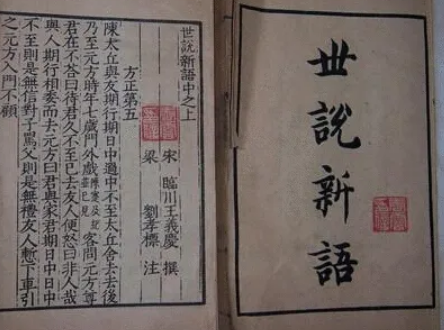 世說新語
世說新語中之上
宋 臨川王義慶 撰
梁 劉孝標 注
方正第五
陳太丘與友期行期日中過中不至太丘舍去去後
乃至元方時年七歲門外戲陳寔及紀並已見客問元方尊
君在不答曰待君久不至已去友人便怒曰非人哉
與人期行相委而去元方曰君與家君期日中日中
不至則是無信對子罵父則是無禮友人慙下車引
之元方入門不顧